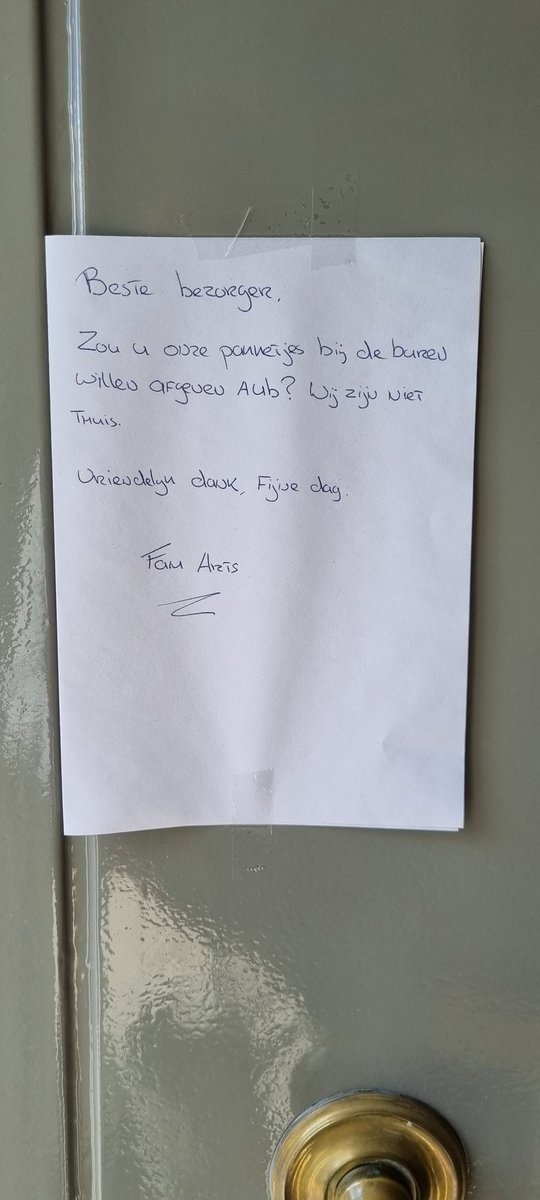 Beste bezorger,
Zou u onze pannetjes bij de buren
willen afgeven AUB? Wij zijn niet
Thuis.
Vriendelijk dank, Fijne dag.
Fam Arts